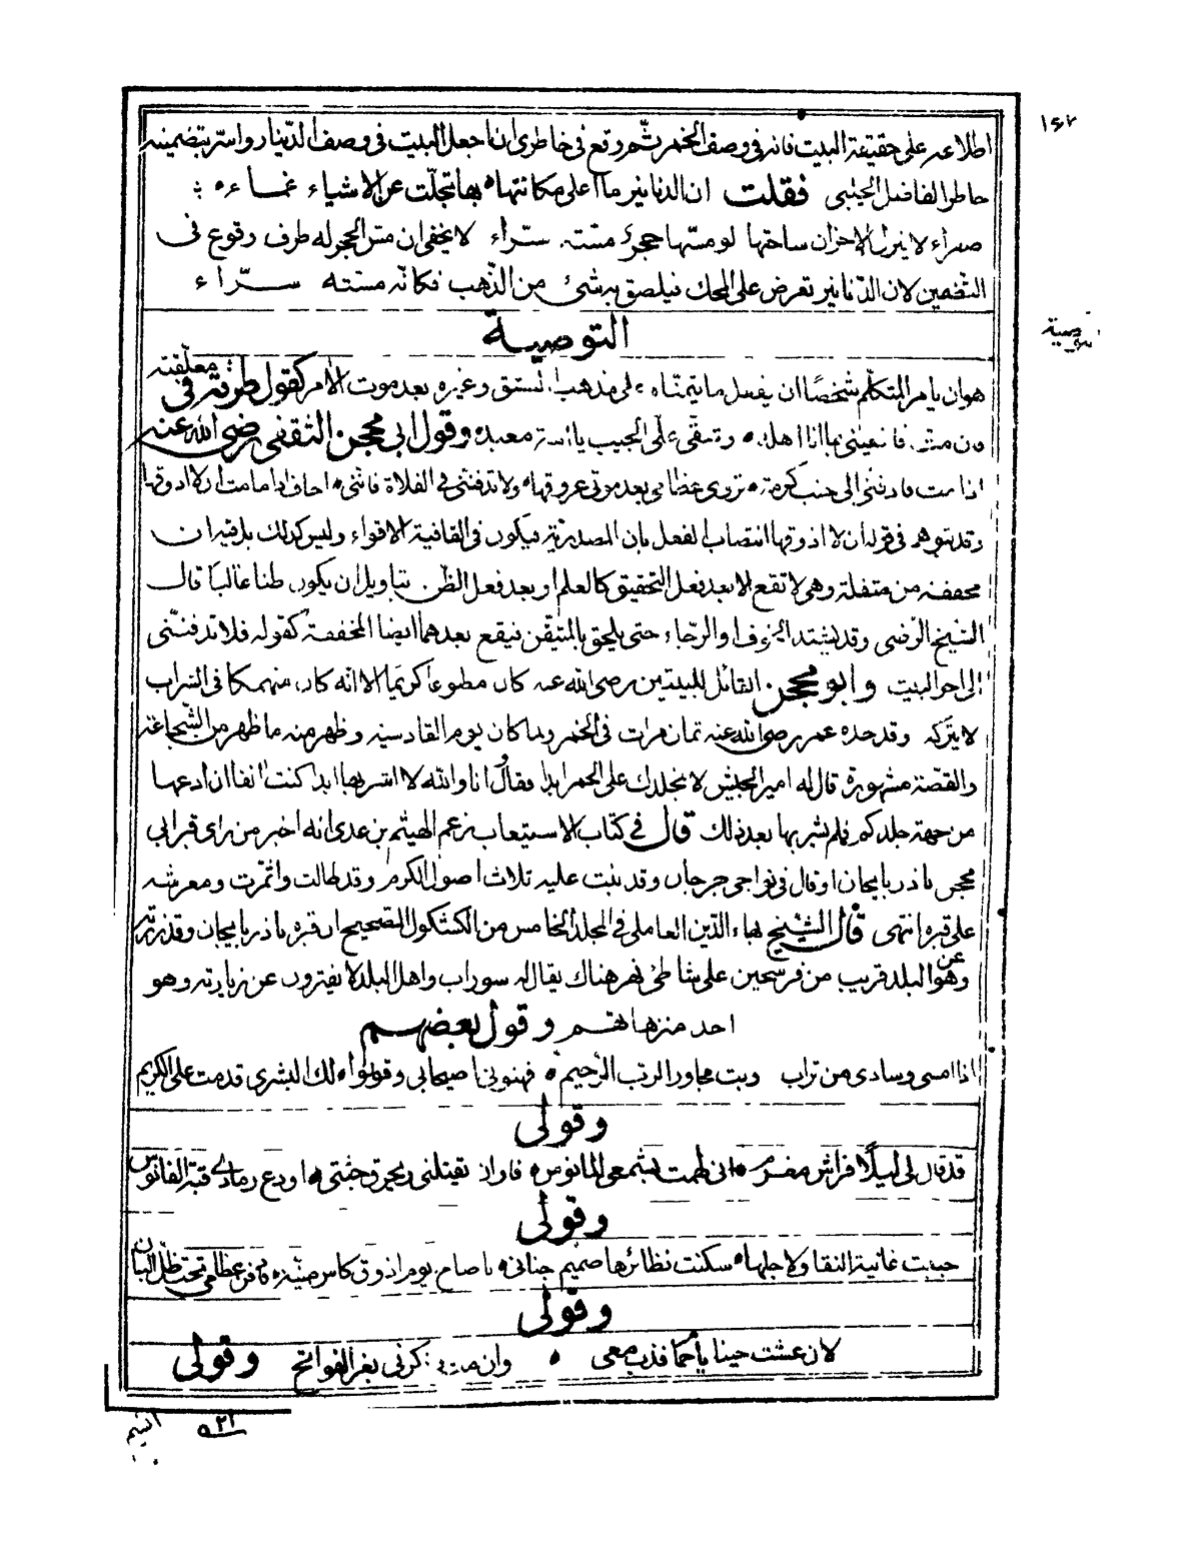 ١٤٢
اطلاعه على حقيقة البيت فانه فى وصف الخمر ثم وقع فى خاطرى ان اجعل البيت فى وصف الدينار واسرّ بتضمينه
خاطر الفاضل الجنبى فقلت ان الدنانير ما اعلى مكانتها بها تجلّت عن الاشياء غماء
صفراء لا ينزل الاحزان ساحتها لو مسّها حجر مسّته سرّاء لا يخفى ان مسّ الحجر له طرف وقوع فى
التضمين لان الدنانير تعرض على المحك فيلصق به شئ من الذهب فكانّه مسّته سرّاء
توصية
التوصية
هو ان يامر المتكلّم شخصًا ان يفعل ما يتمنّاه على مذهب العشق وغيره بعد موت الآمر كقول طرفة فى معلّقته
فان متّ فانعينى بما انا اهله وشقّى علىّ الجيب يا ابنة معبد وقول ابى محجن الثقفى رضى الله عنه
اذا مت فادفنى الى جنب كرمة تروى عظامى بعد موتى عروقها ولا تدفننى فى الفلاة فاننى اخاف اذا ما مت ان لا اذوقها
وقد يتوهم فى قوله ان لا اذوقها انتصاب الفعل بان المصدرية فيكون فى القافية الاقواء وليس كذلك بل فيه ان
مخففة من مثقلة وهى لا تقع الا بعد فعل التحقيق كالعلم او بعد فعل الظن بتاويل ان يكون ظنا غالبا قال
الشيخ الرضى وقد يشتد الخوف او الرجاء حتى يلحق بالمتيقن فيقع بعدهما ايضا المخففة كقوله فلا تدفننى
الى اخر البيت وابو محجن القائل للبيتين رضى الله عنه كان مطبوعا كريما الا انه كان منهمكا فى الشراب
لا يتركه وقد حدّه عمر رضى الله عنه ثمان مرات فى الخمر ولما كان يوم القادسية وظهر منه ما ظهر من الشجاعة
والقصّة مشهورة قال له امير الجيش لا نجلدك على الخمر ابدا فقال وانا والله لا اشربها ابدا كنت انفا ان ادعها
من جهة جلدكم فلم يشربها بعد ذلك قال فى كتاب الاستيعاب زعم الهيثم بن عدى انه اخبر من راى قبر ابى
محجن باذربايجان او قال فى نواحى جرجان وقد نبت عليه ثلاث اصول الكرم وقد طالت واثمرت ومعرشه
على قبره انتهى قال الشيخ بهاء الدين العاملى فى المجلد الخامس من الكشكول الصحيح ان قبره باذربايجان وقد زرته
وهو عن البلد قريب من فرسخين على شاطئ نهر هناك يقال له سوراب واهل البلد لا يفترون عن زيارته وهو
احد منزهاتهم وقول بعضهم
اذا امسى وسادى من تراب وبت مجاور الرب الرحيم فهنونى اصيحابى وقولوا لك البشرى قدمت على الكريم
وقولى
قد قال لى ليلًا فراش مغرم انى ظمت بشمعى المانوس فاوان تقتلنى ويحرق جثتى اودع رمادى قبة الفانوس
وقولى
حببت غانية النقا ولاجلها سكنت نظائرها صميم جنانى يا صاح يوم اذوق كاس منية فادفن عظامى تحت ظل البان
وقولى
لان عشت حينا يا حما فذب معى وان مت فاذكرنى بغر الفواتح وقولى
٥٢١